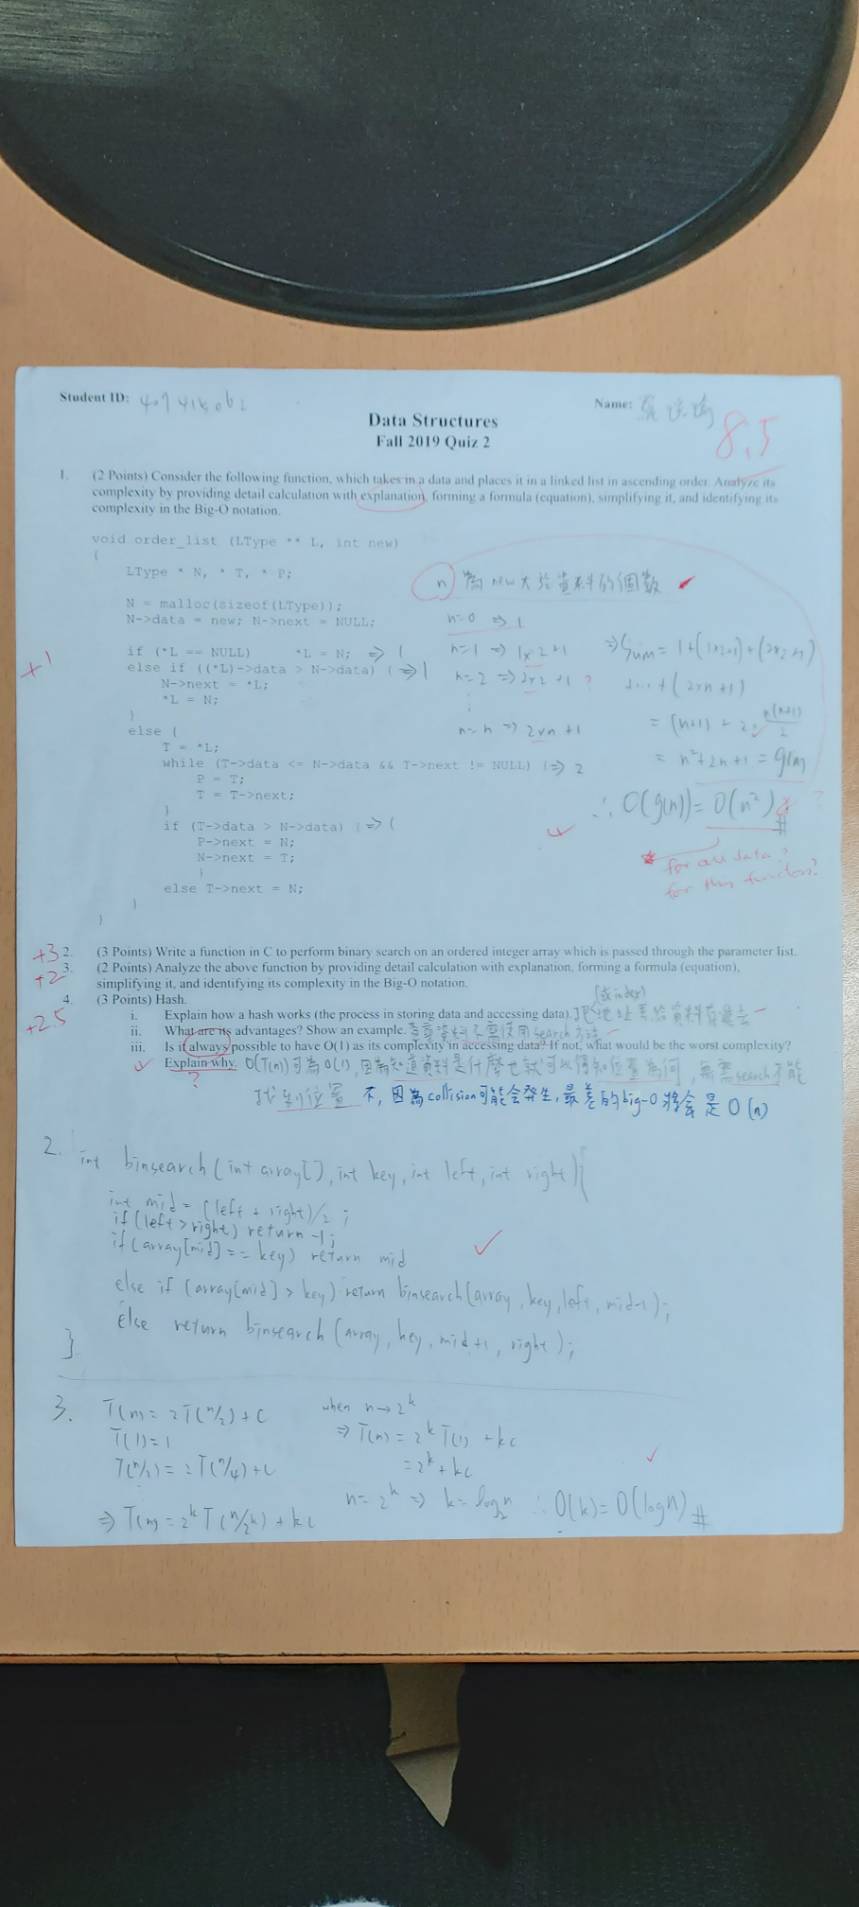 Student ID:
Name:
8.5
Data Structures
Fall 2019 Quiz 2
1. (2 Points) Consider the following function, which takes in a data and places it in a linked list in ascending order. Analyze its
complexity by providing detail calculation with explanation, forming a formula (equation), simplifying it, and identifying its
complexity in the Big-O notation.
void order_list (LType ** L, int new)
{
LType * N, * T, * P;
n 為 new 大於資料的個數
N = malloc(sizeof(LType));
N->data = new; N->next = NULL;
n=0 ⇒ 1
+1
if (*L == NULL) *L = N; ⇒ 1
n=1 ⇒ 1x2+1
⇒ Sum = 1+(1x2+1)+(2x2+1)
else if ((*L)->data > N->data) { ⇒ 1
N->next = *L;
n=2 ⇒ 2x2+1 ?
+...+(2xn+1)
*L = N;
}
else {
n=n ⇒ 2xn+1
= (n+1) + 2·n(n+1)/2
T = *L;
while (T->data <= N->data && T->next != NULL) { ⇒ 2
= n²+2n+1 = g(n)
P = T;
T = T->next;
}
∴ O(g(n)) = O(n²) #
?
if (T->data > N->data) { ⇒ 1
P->next = N;
N->next = T;
}
for all data?
for this function?
else T->next = N;
}
}
+3 2. (3 Points) Write a function in C to perform binary search on an ordered integer array which is passed through the parameter list.
+2 3. (2 Points) Analyze the above function by providing detail calculation with explanation, forming a formula (equation),
simplifying it, and identifying its complexity in the Big-O notation.
4. (3 Points) Hash.
+2.5
(或index)
i. Explain how a hash works (the process in storing data and accessing data). 把地址丟給資料存進去
ii. What are its advantages? Show an example. 尋資料不需使用search方法
iii. Is it always possible to have O(1) as its complexity in accessing data? If not, what would be the worst complexity?
Explain why. O(T(n))可為O(1), 因為知道資料是什麼也就可以得知位置為何, 無需search才能
?
找到位置 不, 因為collision可能会発生, 最差的big-O將會是O(n)
2. int binsearch(int array[], int key, int left, int right){
int mid = (left + right)/2;
if(left>right) return -1;
if(array[mid]==key) return mid
else if (array[mid] > key) return binsearch(array, key, left, mid-1);
else return binsearch(array, key, mid+1, right);
}
3. T(n) = 2T(n/2)+C
T(1)=1
T(n/2) = 2T(n/4)+C
⇒ T(n) = 2^k T(n/2^k) + kc
when n→2^k
⇒ T(n) = 2^k T(1) + kc
= 2^k + kc
n = 2^k ⇒ k = log₂n ∴ O(k) = O(log n) #